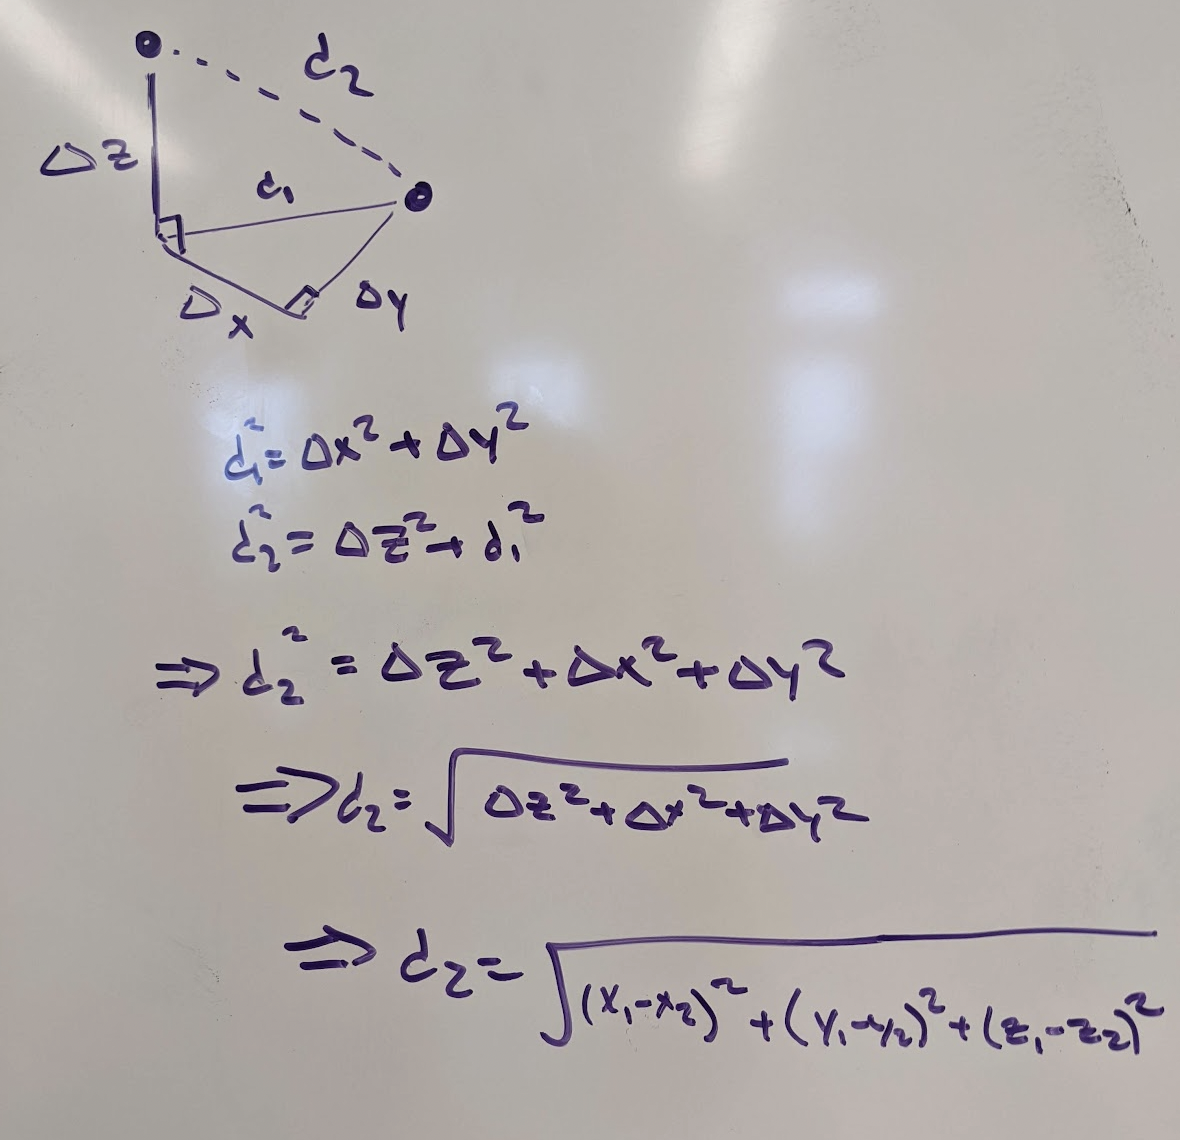 d₂
ΔZ
d₁
Δx
Δy
d₁² = Δx² + Δy²
d₂² = ΔZ² + d₁²
⇒ d₂² = ΔZ² + Δx² + Δy²
⇒ d₂ = √(ΔZ² + Δx² + Δy²)
⇒ d₂ = √((x₁-x₂)² + (y₁-y₂)² + (z₁-z₂)²)